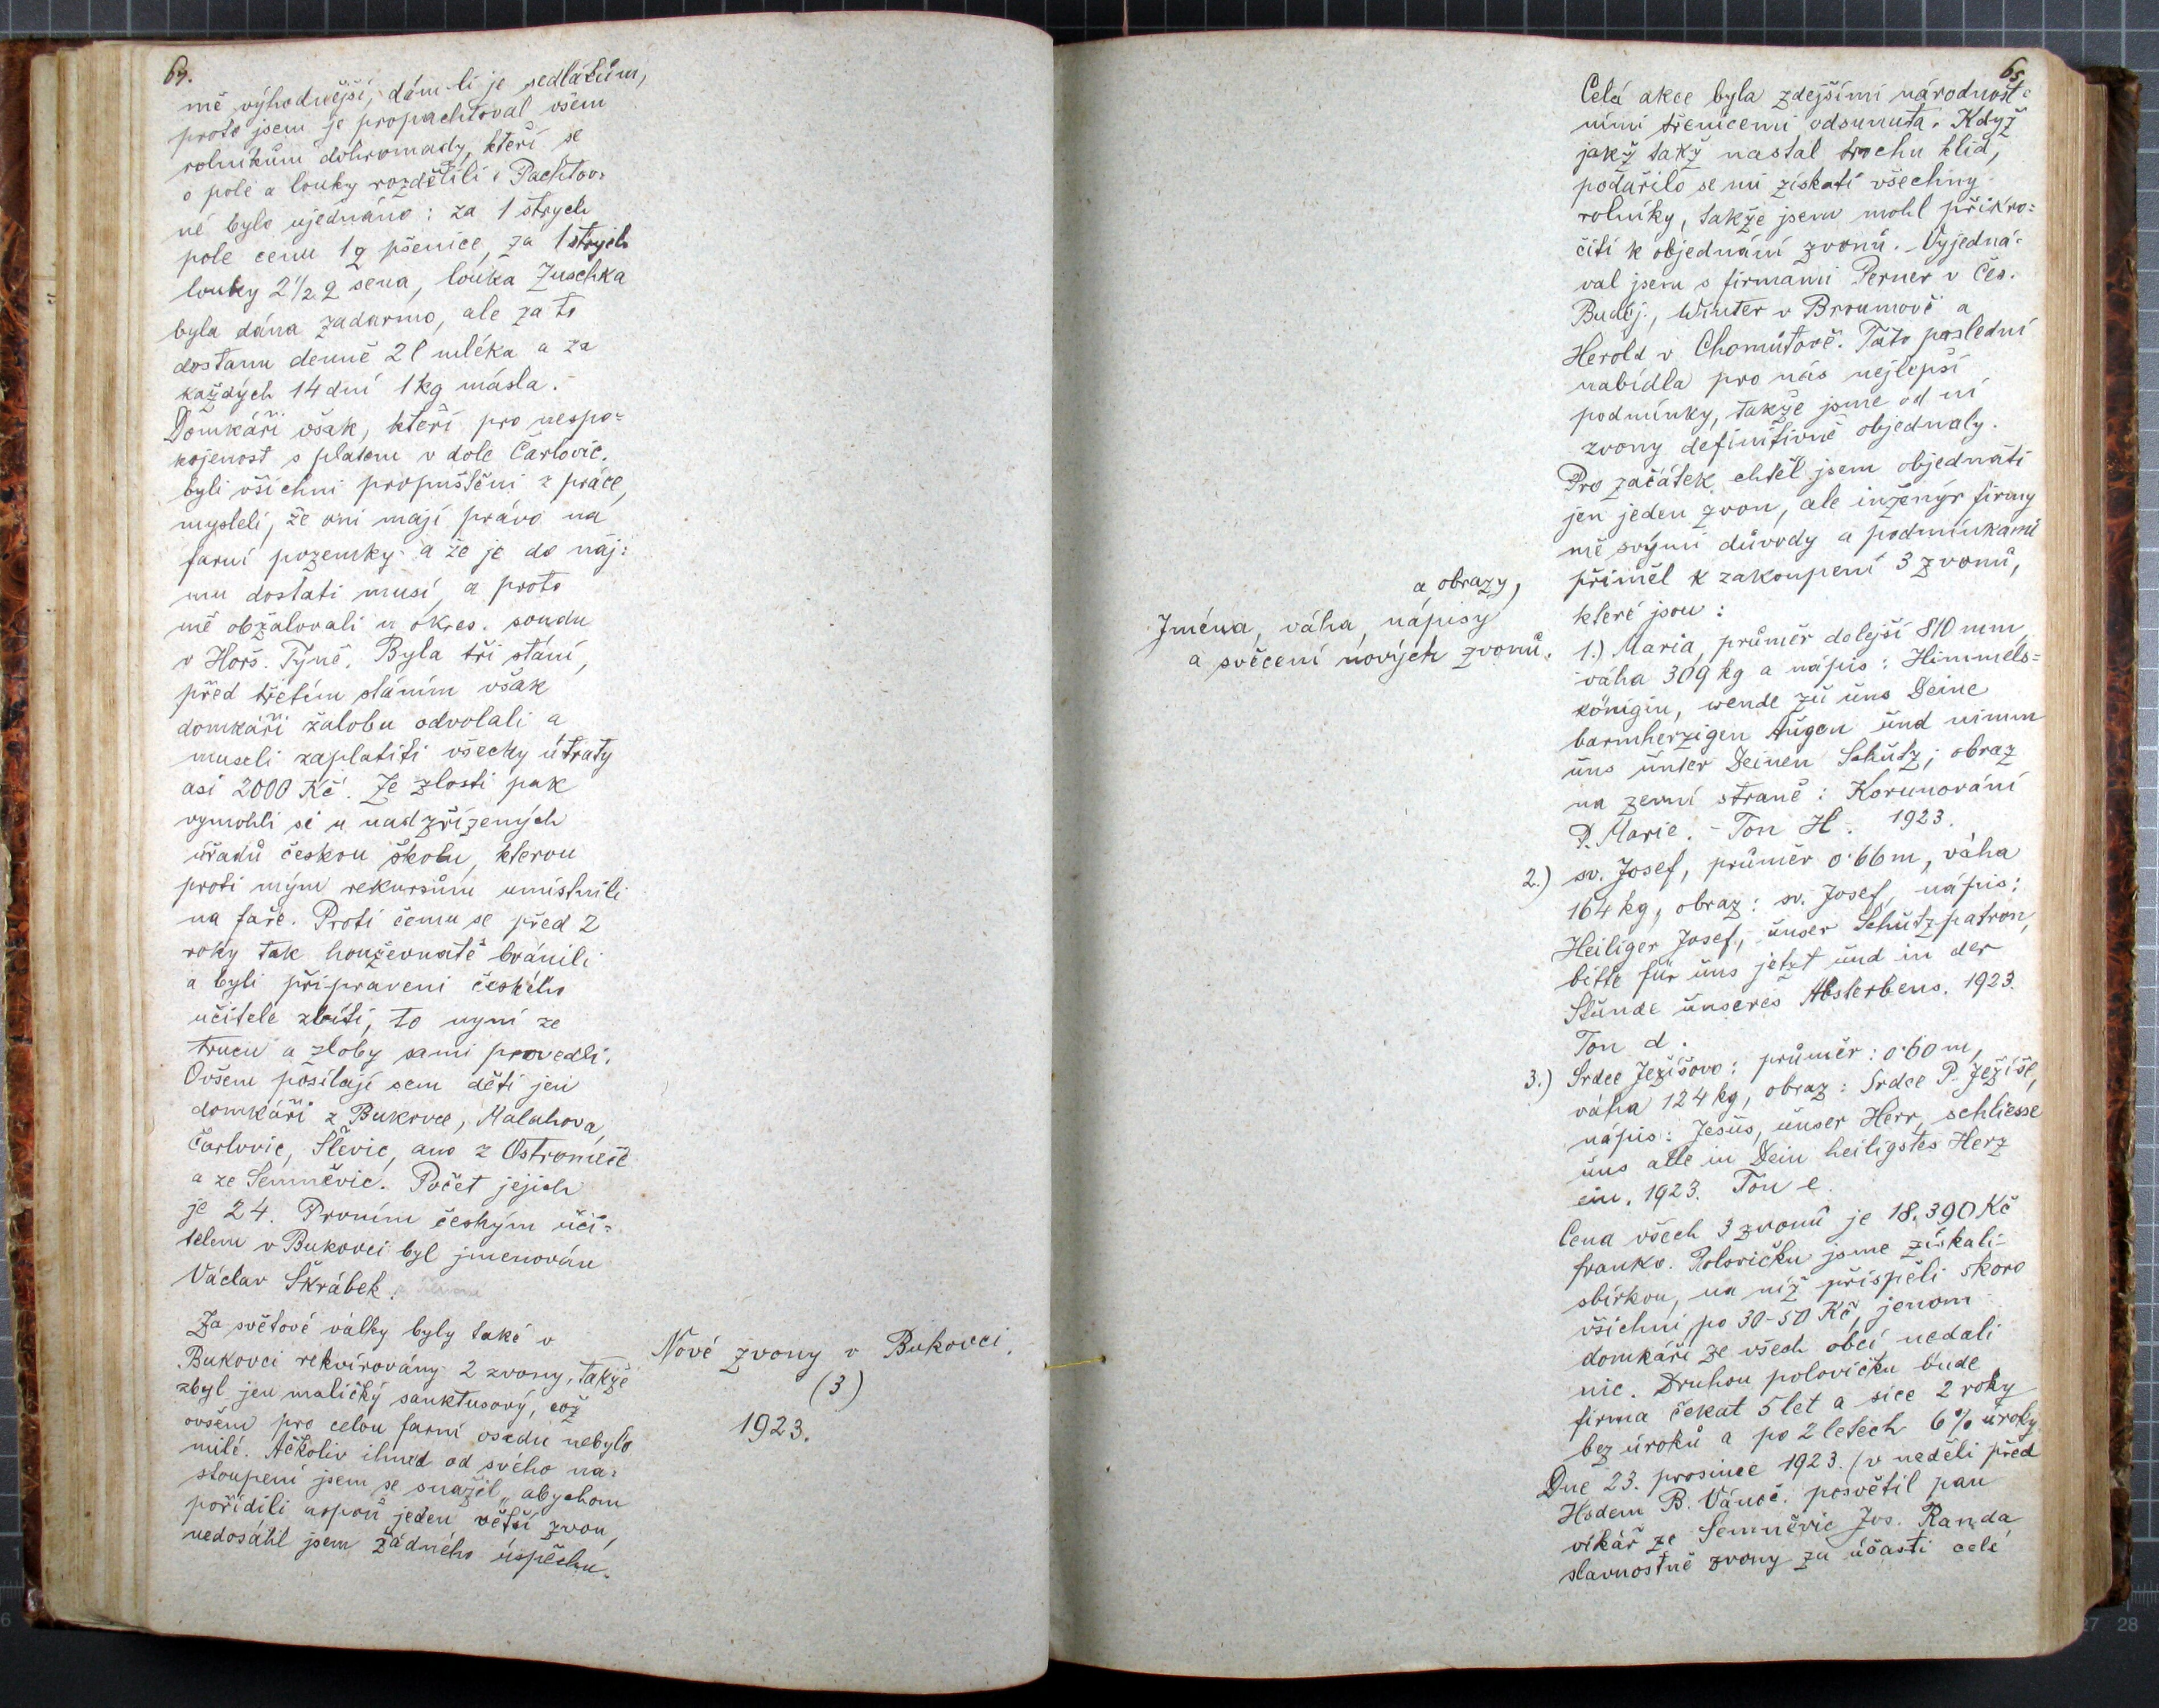 64.
mě výhodnější, dám-li je sedlákům,
proto jsem je propachtoval všem
rolníkům dohromady, kteří se
o pole a louky rozdělili. Pachtov-
né bylo ujednáno: za 1 strych
pole cenu 1 q pšenice, za 1 strych
louky 2 1/2 q sena, louka Zuschka
byla dána zadarmo, ale za to
dostanu denně 2 l mléka a za
každých 14 dní 1 kg másla.
Domkáři však, kteří pro nespo-
kojenost s platem v dole Čarlovic.
byli všichni propuštěni z práce,
mysleli, že oni mají právo na
farní pozemky a že je do náj-
mu dostati musí, a proto
mě obžalovali u okres. soudu
v Horš. Týně. Byla tři stání,
před třetím stáním však
domkáři žalobu odvolali a
museli zaplatiti všecky útraty
asi 2000 Kč. Ze zlosti pak
vymohli si u nadzřízených
úřadů českou školu, kterou
proti mým rekursům umístnili
na faře. Proti čemu se před 2
roky tak houževnatě bránili
a byli připraveni českého
učitele zbíti, to nyní ze
trucu a zloby sami provedli.
Ovšem posílají sem děti jen
domkáři z Bukovce, Malahova,
Čarlovic, Štěvic, ano z Ostromeče
a ze Semněvic. Počet jejich
je 24. Prvním českým uči-
telem v Bukovci byl jmenován
Václav Škrábek.
Za světové války byly také v
Bukovci rekvírovány 2 zvony, takže
zbyl jen maličký sanktusový, což
ovšem pro celou farní osadu nebylo
milé. Ačkoliv ihned od svého na-
stoupení jsem se snažil, abychom
pořídili aspoň jeden větší zvon,
nedosáhl jsem žádného úspěchu.
Nové zvony v Bukovci.
(3)
1923.
65.
Celá akce byla zdejšími národnost-
ními třenicemi odsunuta. Když
jakž takž nastal trochu klid,
podařilo se mi získati všechny
rolníky, takže jsem mohl přikro-
čiti k objednání zvonů. Vyjedná-
val jsem s firmami Perner v Čes.
Buděj., Winter v Broumově a
Herold v Chomutově. Tato poslední
nabídla pro nás nejlepší
podmínky, takže jsme od ní
zvony definitivně objednaly.
Pro začátek chtěl jsem objednati
jen jeden zvon, ale inženýr firmy
mě svými důvody a podmínkami
přiměl k zakoupení 3 zvonů,
které jsou:
a obrazy,
Jména, váha, nápisy
a svěcení nových zvonů.
1.) Maria, průměr dolejší 810 mm,
váha 309 kg a nápis: Himmels-
königin, wende zu uns Deine
barmherzigen Augen und nimm
uns unter Deinen Schutz; obraz
na zevní straně: Korunování
P. Marie. - Ton H. 1923.
2.) sv. Josef, průměr 0·66 m, váha
164 kg, obraz: sv. Josef, nápis:
Heiliger Josef, unser Schutzpatron,
bitte für uns jetzt und in der
Stunde unseres Absterbens. 1923.
Ton d.
3.) Srdce Ježíšovo: průměr: 0·60 m,
váha 124 kg, obraz: Srdce P. Ježíše,
nápis: Jesus, unser Herr, schliesse
uns alle in Dein heiligstes Herz
ein. 1923. Ton e.
Cena všech 3 zvonů je 18.390 Kč
franko. Polovičku jsme získali
sbírkou, na níž přispěli skoro
všichni po 30-50 Kč, jenom
domkáři ze všech obcí nedali
nic. Druhou polovičku bude
firma čekat 5 let a sice 2 roky
bez úroků a po 2 letech 6% úroky
Dne 23. prosince 1923. (v neděli před
Hodem B. Vánoč. posvětil pan
vikář ze Semněvic Jos. Randa
slavnostně zvony za účasti celé